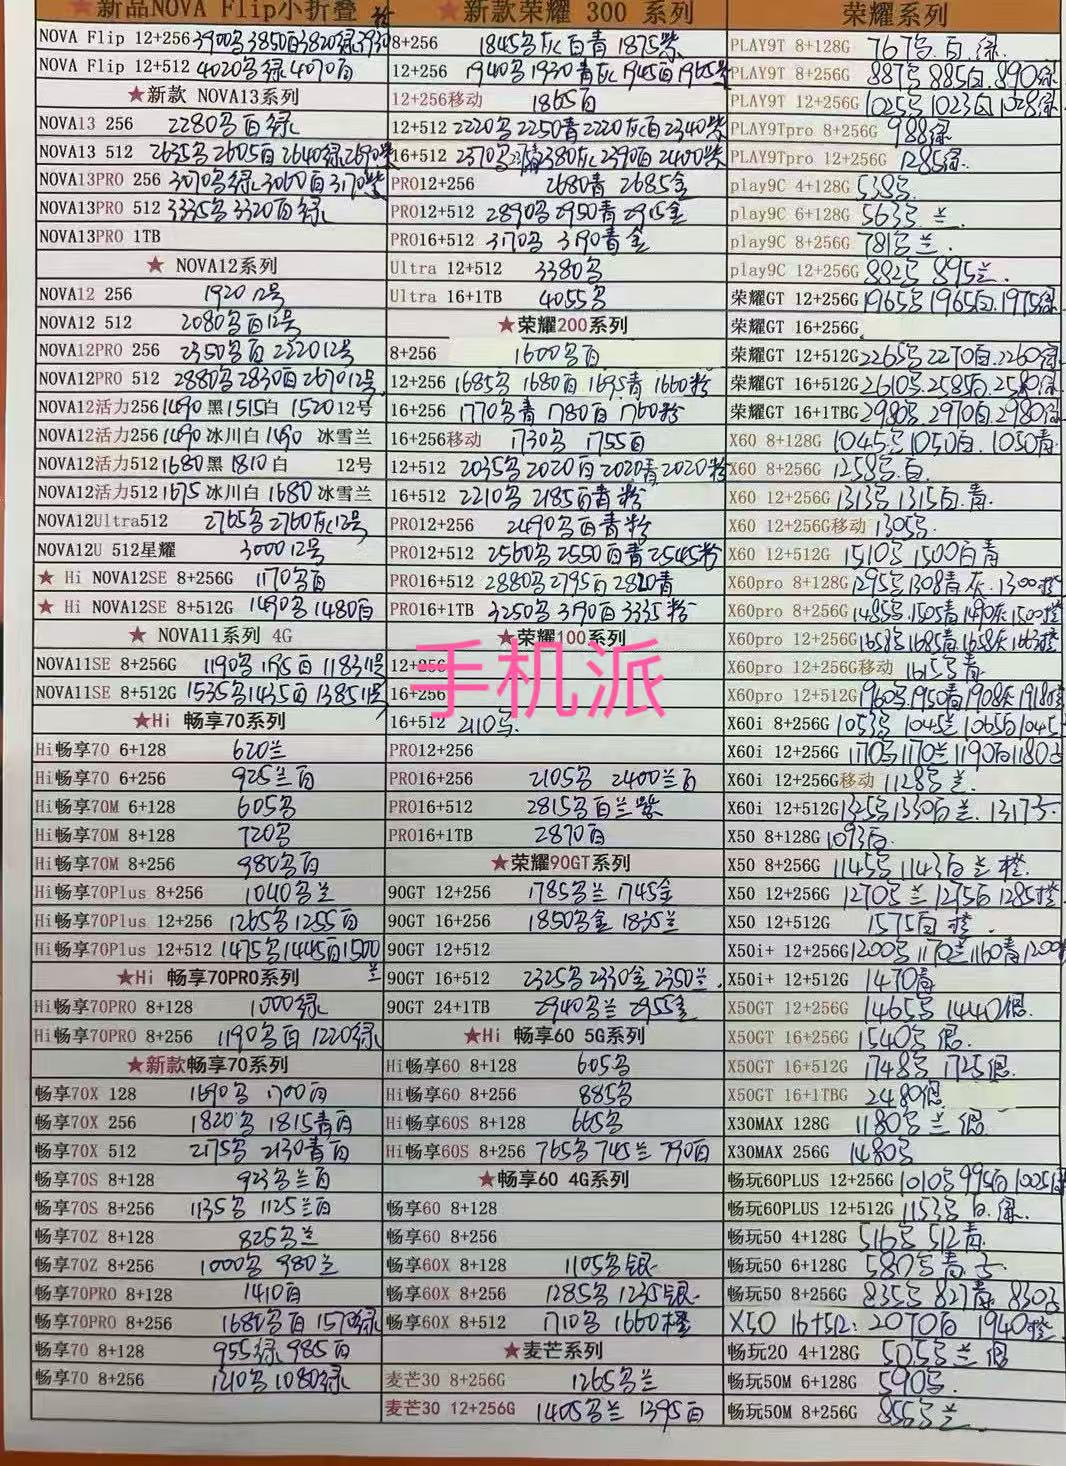 新品NOVA Flip小折叠
NOVA Flip 12+256 3900名3850白3820绿
NOVA Flip 12+512 4020名绿4070白
★新款 NOVA13系列
NOVA13 256 2280名白绿
NOVA13 512 2635名2605白2640绿2690紫
NOVA13PRO 256 3070名绿3060白3170紫
NOVA13PRO 512 3335名3320白绿
NOVA13PRO 1TB
★ NOVA12系列
NOVA12 256 1920 12号
NOVA12 512 2080名白12号
NOVA12PRO 256 2350名白222012号
NOVA12PRO 512 2880名2830白267012号
NOVA12活力256 1490黑1515白 1520 12号
NOVA12活力256 1490冰川白1490 冰雪兰
NOVA12活力512 1680黑1810白 12号
NOVA12活力512 1675冰川白1680冰雪兰
NOVA12Ultra512 2765名2760灰12号
NOVA12U 512星耀 300012号
★ Hi NOVA12SE 8+256G 1170名白
★ Hi NOVA12SE 8+512G 1490名1480白
★ NOVA11系列 4G
NOVA11SE 8+256G 1190名1195白118311号
NOVA11SE 8+512G 1535名1435白138511号
★Hi 畅享70系列
Hi畅享70 6+128 620兰
Hi畅享70 6+256 925兰白
Hi畅享70M 6+128 605名
Hi畅享70M 8+128 720名
Hi畅享70M 8+256 980名白
Hi畅享70Plus 8+256 1040名兰
Hi畅享70Plus 12+256 1265名1255白
Hi畅享70Plus 12+512 1475名1445白1500兰
★Hi 畅享70PRO系列
Hi畅享70PRO 8+128 1000绿
Hi畅享70PRO 8+256 1190名白 1220绿
★新款畅享70系列
畅享70X 128 1690名 1700白
畅享70X 256 1820名 1815青白
畅享70X 512 2175名 2130青白
畅享70S 8+128 923名兰白
畅享70S 8+256 1135名 1125兰白
畅享70Z 8+128 825名兰
畅享70Z 8+256 1000名 980兰
畅享70PRO 8+128 1410白
畅享70PRO 8+256 1680名白 1570绿
畅享70 8+128 955绿985白
畅享70 8+256 1210名1080绿
★新款荣耀 300 系列
8+256 1845名灰白青 1875紫
12+256 1940名1930青灰1945白1965紫
12+256移动 1865白
12+512 2220名2250青2220灰白2340紫
16+512 2370名2380灰2390白2400紫
PRO12+256 2680青 2685金
PRO12+512 2890名2950青2915金
PRO16+512 3170名 3190青金
Ultra 12+512 3380名
Ultra 16+1TB 4055名
★荣耀200系列
8+256 1600名白
12+256 1685名1680白1695青1660粉
16+256 1770名青 1780白1760粉
16+256移动 1730名 1755白
12+512 2035名2020白2020青2020粉
16+512 2210名2185白青粉
PRO12+256 2490名白青粉
PRO12+512 2560名2550白青2545粉
PRO16+512 2880名2795白2820青
PRO16+1TB 3250名3190白3335粉
★荣耀100系列
12+256
16+256
16+512 2110名
PRO12+256
PRO16+256 2105名 2400兰白
PRO16+512 2815名白兰紫
PRO16+1TB 2870白
★荣耀90GT系列
90GT 12+256 1785名兰1745金
90GT 16+256 1850名金1835兰
90GT 12+512
90GT 16+512 2325名2330金2350兰
90GT 24+1TB 2940名兰2955金
★Hi 畅享60 5G系列
Hi畅享60 8+128 605名
Hi畅享60 8+256 885名
Hi畅享60S 8+128 665名
Hi畅享60S 8+256 765名745兰790白
★畅享60 4G系列
畅享60 8+128
畅享60 8+256
畅享60X 8+128 1105名银
畅享60X 8+256 1285名1235银
畅享60X 8+512 1710名1660橙
★麦芒系列
麦芒30 8+256G 1265名兰
麦芒30 12+256G 1405名兰 1395白
荣耀系列
PLAY9T 8+128G 767名.白.绿
PLAY9T 8+256G 887名885白890绿
PLAY9T 12+256G 1025名1023白1028绿
PLAY9Tpro 8+256G 988绿
PLAY9Tpro 12+256G 1285绿
play9C 4+128G 538名
play9C 6+128G 563名 兰
play9C 8+256G 781名兰
play9C 12+256G 882名 895兰
荣耀GT 12+256G 1965名1965白1975绿
荣耀GT 16+256G
荣耀GT 12+512G 2265名2270白2260绿
荣耀GT 16+512G 2610名2585白2580绿
荣耀GT 16+1TBG 2980名2970白2980绿
X60 8+128G 1045名1050白1050青
X60 8+256G 1258名.白
X60 12+256G 1313名1315白.青
X60 12+256G移动 1305名
X60 12+512G 1510名1500白青
X60pro 8+128G 1295名1308青灰1300橙
X60pro 8+256G 1485名1505青1490灰1500橙
X60pro 12+256G 1658名1685青1658灰1663橙
X60pro 12+256G移动 1615名青
X60pro 12+512G 1960名1950青1908灰1918橙
X60i 8+256G 1053名 1045兰1065白1045
X60i 12+256G 1170名1170兰1190白1180
X60i 12+256G移动 1128名兰
X60i 12+512G 1325名1330白兰.1317
X50 8+128G 1093白
X50 8+256G 1145名1143白兰橙
X50 12+256G 1270名兰1275白1285橙
X50 12+512G 1575白橙
X50i+ 12+256G 1200名1170兰1160青1200
X50i+ 12+512G 1470青
X50GT 12+256G 1465名1440银
X50GT 16+256G 1540名银
X50GT 16+512G 1748名1725银
X50GT 16+1TBG 2480银
X30MAX 128G 1180名兰银
X30MAX 256G 1480名
畅玩60PLUS 12+256G 1010名995白1005绿
畅玩60PLUS 12+512G 1153名白.绿
畅玩50 4+128G 516名512青
畅玩50 6+128G 580名青
畅玩50 8+256G 835名827青830
X50 16+512:2070白 1940橙
畅玩20 4+128G 505名兰银
畅玩50M 6+128G 590名
畅玩50M 8+256G 855名兰
手机派